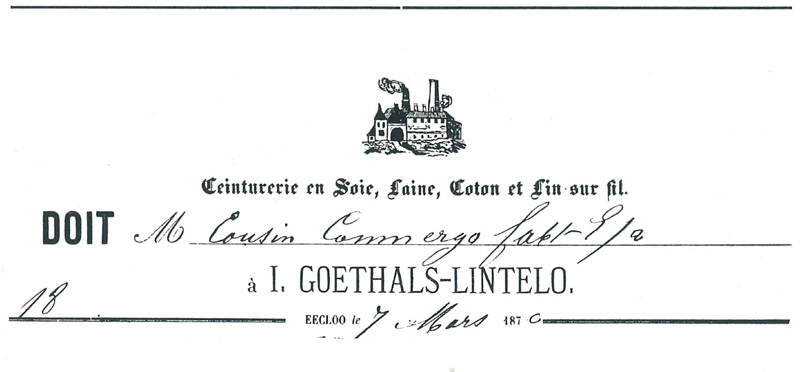 Teinturerie en Soie, Laine, Coton et Lin sur fil.
DOIT M Cousin Commergo fabt E/a
à I. GOETHALS-LINTELO.
18
EECLOO le 7 Mars 1870